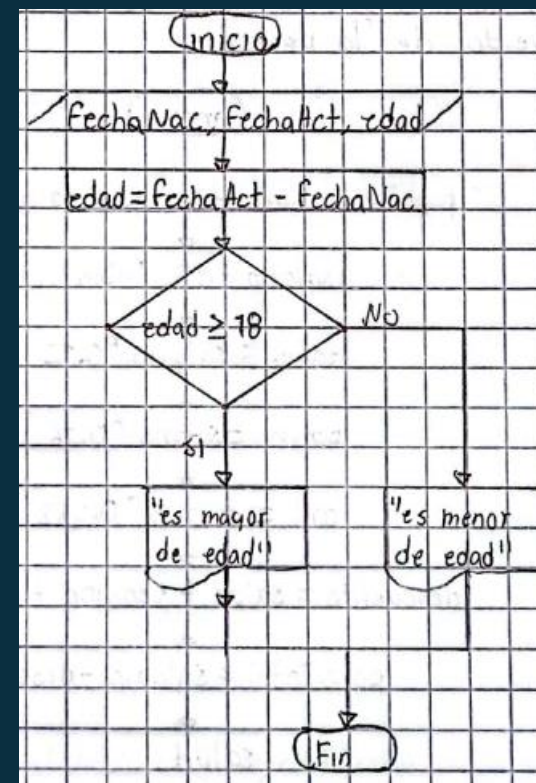 inicio
fechaNac, fechaAct, edad
edad = fechaAct - fechaNac
edad ≥ 18
NO
SI
"es mayor
de edad"
"es menor
de edad"
Fin